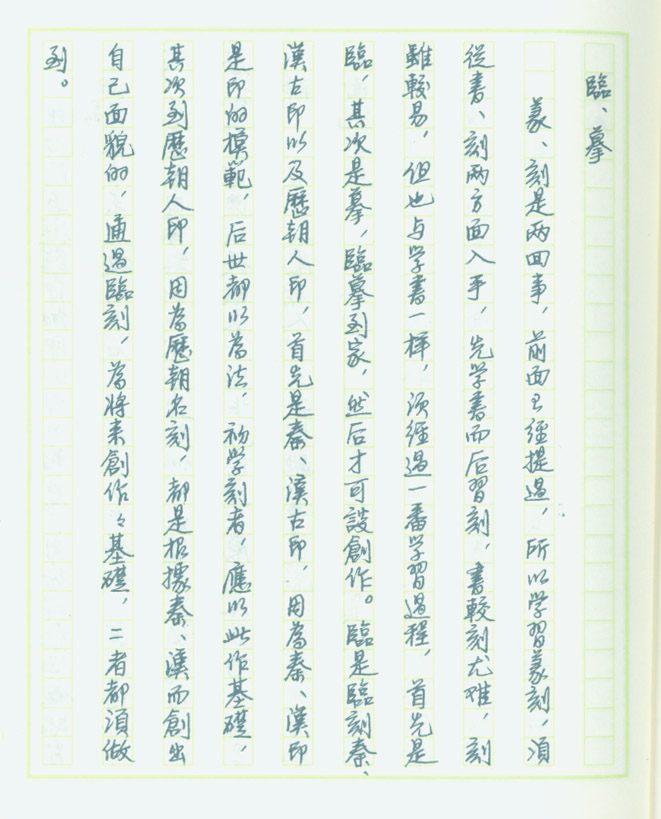 臨、摹
篆、刻是两回事，前面已經提過，所以学習篆刻，須
從書、刻两方面入手，先学書而后習刻，書較刻尤难，刻
雖較易，但也与学書一样，須經過一番学習過程，首先是
臨，其次是摹，臨摹到家，然后才可談創作。臨是臨刻秦、
漢古印以及歷朝人印，首先是秦、漢古印，因為秦、漢印
是印的模範，后世都以為法，初学刻者，應以此作基礎，
其次到歷朝人印，因為歷朝名刻，都是根據秦、漢而創出
自己面貌的，通過臨刻，為將来創作々基礎，二者都須做
到。